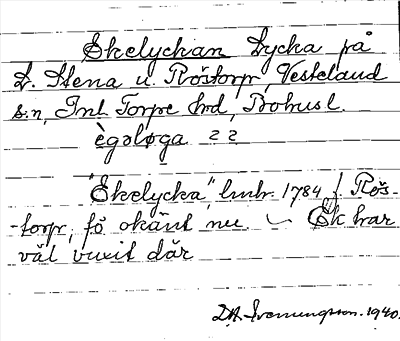 Ekelyckan Lycka på
L. Stena u. Röstorp, Vesteland
s:n, Inl. Torpe hrd, Bohusl.
ègəløga 2 2
"Ekelycka" lmhr. 1784 f Rös-
-torp, fö okänt nu. Ek har
väl vuxit där